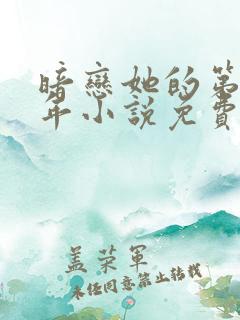 暗戀她的第
年小說免費
孟荣軍
未经同意禁止转载